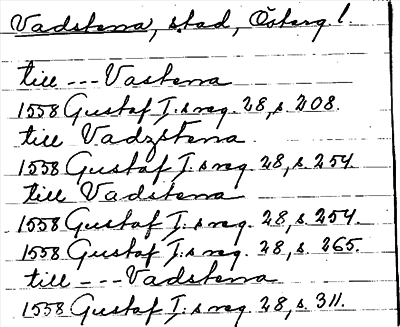 Vadstena, stad, Österg l.
till --- Vastena
1558 Gustaf I:s reg. 28, s. 208.
till Vadzstena.
1558 Gustaf I:s reg. 28, s. 254.
till Vadstena
1558 Gustaf I:s reg. 28, s. 254.
1558 Gustaf I:s reg. 28, s. 265.
till --- Vadstena
1558 Gustaf I:s reg. 28, s. 311.